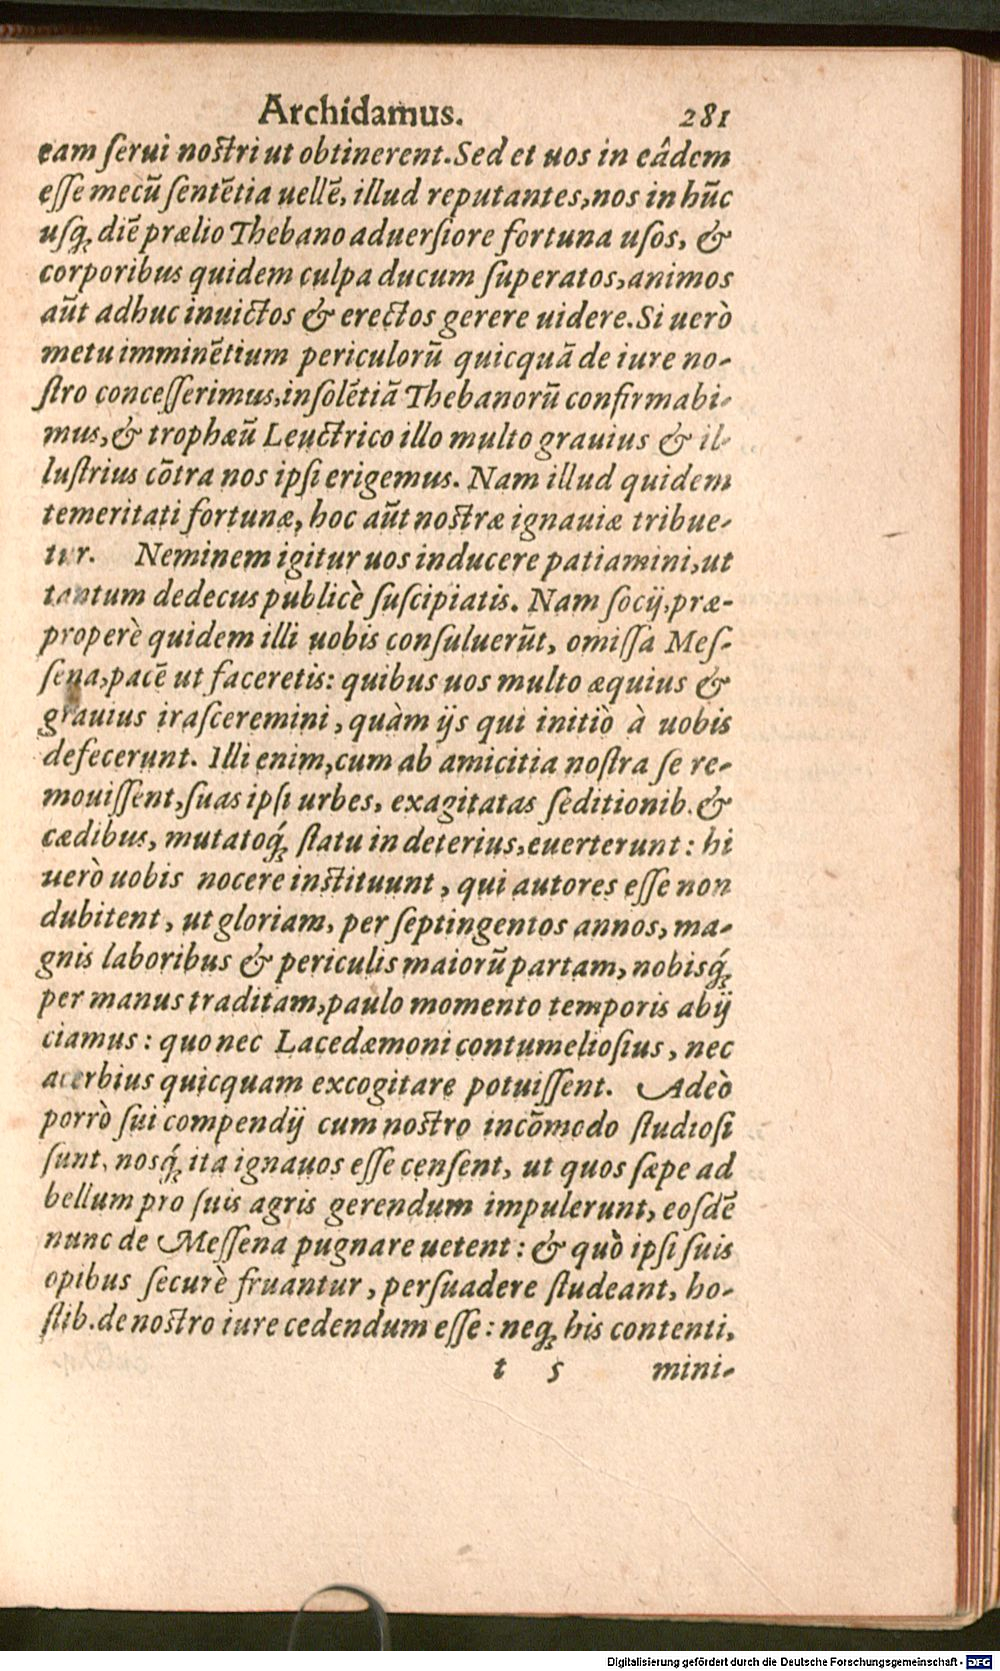 Archidamus. 281
eam ſerui noſtri ut obtinerent. Sed et uos in eâdem
eſſe mecũ ſentẽtia uellẽ, illud reputantes, nos in hũc
uſq̃ diẽ prælio Thebano aduerſiore fortuna uſos, &
corporibus quidem culpa ducum ſuperatos, animos
aũt adhuc inuictos & erectos gerere uidere. Si uerò
metu imminẽtium periculorũ quicquã de iure no-
ſtro conceſſerimus, inſolẽtiã Thebanorũ confirmabi-
mus, & trophæũ Leuctrico illo multo grauius & il-
luſtrius cõtra nos ipſi erigemus. Nam illud quidem
temeritati fortunæ, hoc aũt noſtræ ignauiæ tribue-
tur. Neminem igitur uos inducere patiamini, ut
tantum dedecus publicè ſuſcipiatis. Nam ſocij, præ-
properè quidem illi uobis conſuluerũt, omiſſa Meſ-
ſena, pacẽ ut faceretis: quibus uos multo æquius &
grauius iraſceremini, quàm ijs qui initiò à uobis
defecerunt. Illi enim, cum ab amicitia noſtra ſe re-
mouiſſent, ſuas ipſi urbes, exagitatas ſeditionib. &
cædibus, mutatoq́; ſtatu in deterius, euerterunt: hi
uerò uobis nocere inſtituunt, qui autores eſſe non
dubitent, ut gloriam, per ſeptingentos annos, ma-
gnis laboribus & periculis maiorũ partam, nobisq́;
per manus traditam, paulo momento temporis abij
ciamus: quo nec Lacedæmoni contumelioſius, nec
acerbius quicquam excogitare potuiſſent. Adeò
porrò ſui compendij cum noſtro incõmodo ſtudioſi
ſunt, nosq́; ita ignauos eſſe cenſent, ut quos ſæpe ad
bellum pro ſuis agris gerendum impulerunt, eoſdẽ
nunc de Meſſena pugnare uetent: & quò ipſi ſuis
opibus ſecurè fruantur, perſuadere ſtudeant, ho-
ſtib. de noſtro iure cedendum eſſe: neq; his contenti,
t 5 mini-
Digitalisierung gefördert durch die Deutsche Forschungsgemeinschaft - DFG